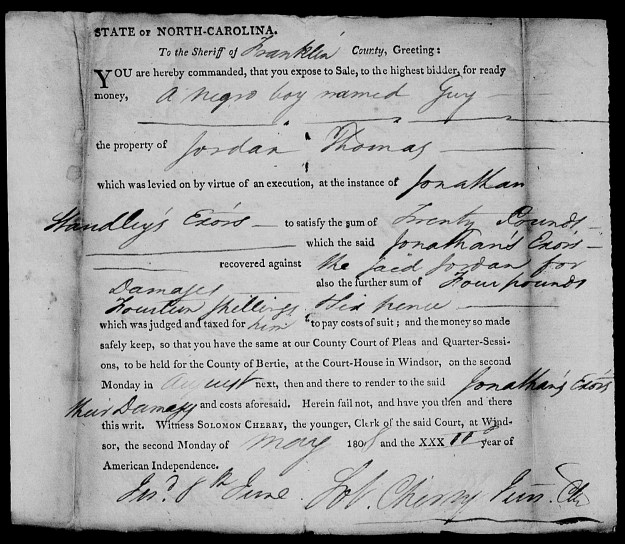 STATE OF NORTH-CAROLINA.
To the Sheriff of Franklin County, Greeting:
YOU are hereby commanded, that you expose to Sale, to the highest bidder, for ready
money, A Negro boy named Guy
the property of Jordan Thomas
which was levied on by virtue of an execution, at the instance of Jonathan
Standley's Exors to satisfy the sum of Twenty Pounds
which the said Jonathan's Exors
recovered against the said Jordan for
Damages also the further sum of Four pounds
Fourteen Shellings Six pence
which was judged and taxed for him to pay costs of suit; and the money so made
safely keep, so that you have the same at our County Court of Pleas and Quarter-Sessi-
ons, to be held for the County of Bertie, at the Court-House in Windsor, on the second
Monday in August next, then and there to render to the said Jonathan's Exors
their Damages and costs aforesaid. Herein fail not, and have you then and there
this writ. Witness SOLOMON CHERRY, the younger, Clerk of the said Court, at Wind-
sor, the second Monday of May 180 and the XXX year of
American Independence.
Issd. 8th June. Sol. Cherry Junr. Clk